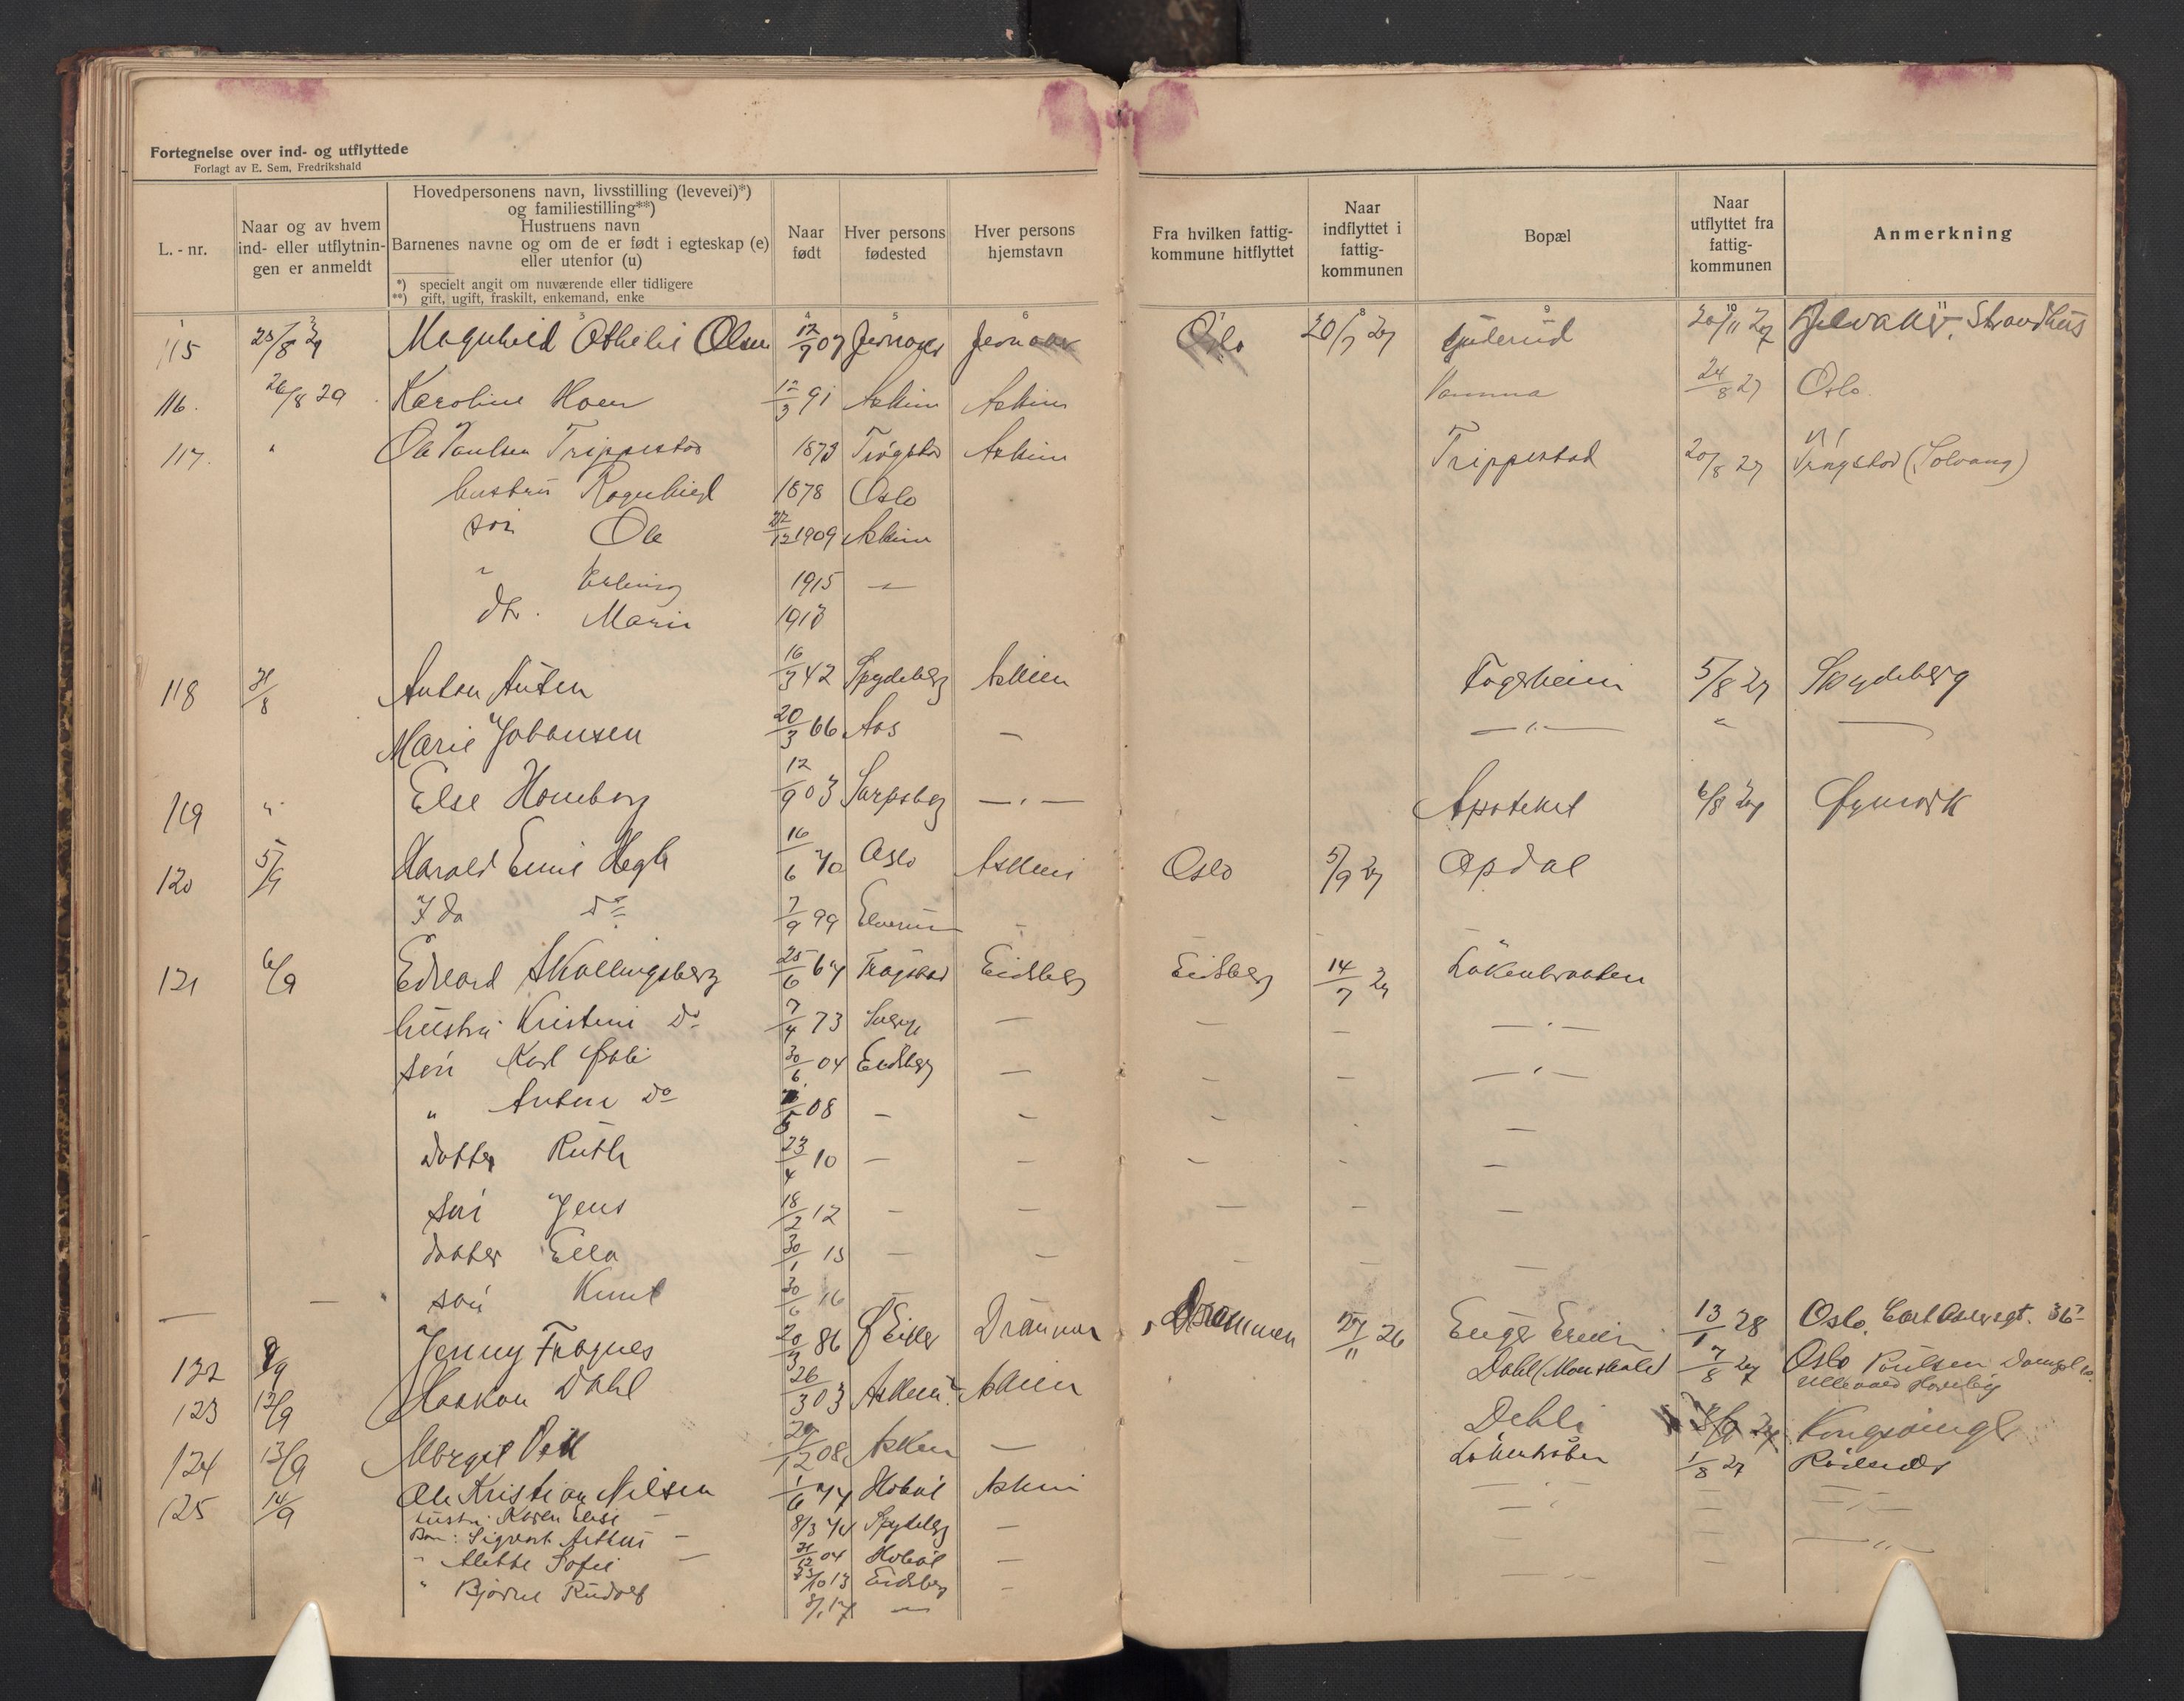 Fortegnelse over ind- og utflyttede
Forlagt av E. Sem, Fredrikshald
L.-nr.
Naar og av hvem ind- eller utflytnin-gen er anmeldt
Hovedpersonens navn, livsstilling (levevei)*)
og familiestilling**)
Hustruens navn
Barnenes navne og om de er født i egteskap (e)
eller utenfor (u)
*) specielt angit om nuværende eller tidligere
**) gift, ugift, fraskilt, enkemand, enke
Naar født
Hver persons fødested
Hver persons hjemstavn
Fra hvilken fattig-kommune hitflyttet
Naar indflyttet i fattig-kommunen
Bopæl
Naar utflyttet fra fattig-kommunen
Anmerkning
115 25/8 27 Magnhild Othelie Olsen 12/9 07 Jevnaker Jevnaker Oslo 20/7 27 20/11 27 Jevnaker, Strandhus
116. 26/8 29 Karoline Hoen 12/3 91 Askim Askim Vamma 24/8 27 Oslo.
117. " Ole Paulsen Trippestad 1873 Trögstad Askim Trippestad 20/8 27 Trögstad (Solvang)
hustru Ragnhild 1878 Oslo
sön Ole 27/12 1909 Askim
" Erling 1915 —
dtr. Marie 1918
118 31/8 Anton Antensen 16/3 42 Spydeberg Askim Fagerheim 5/8 27 Spydeberg
Marie Johansen 20/3 66 Aas — —"— " —
119 " Else Homborg 12/9 03 Sarpsborg —"— Apoteket 6/8 27 Öymark
120 5/9 Harald Emil Hegle 16/6 70 Oslo Askim Oslo 5/9 27 Opdal
Ida Do 7/9 99 Elverum —
121 6/9 Edvard Skallingsberg 25/6 67 Trögstad Eidsberg Eidsberg 14/7 27 Lökenbraaten
hustru Kristine Do 7/4 73 Sverge — — — —"—
sön Karl 30/6 04 Eidsberg — — — —"—
" Anton Do 08 — — — —
datter Ruth 23/4 10 — — — — —
sön Jens 18/2 12 — — — — —
datter Ella 30/1 13 — — — — —
sön Knut 30/6 16
— — Jenny Fragnes 20/3 86 Ø Eiker Drammen Drammen 27/11 26 Enger 13/1 28 Oslo, 36
122 9/9 Haakon Dahl 26/3 03 Askim Askim Dahl (Monskale) 7/8 27 Oslo
123 12/9 Margit 08 Askim — Dehli 27 Kongsvinger
124 13/9 Ole Kristian Nilsen 1/6 77 Hobøl Askim 1/8 27 Rödenes
125 14/9 hustru Karen Elise — 8/3 74 Spydeberg —
Barn: Sigvart Arthur — 31/12 04 Hobøl —
" Alette Sofie — 23/10 13 Eidsberg —
" Bjarne Rudolf 8/1 17 —